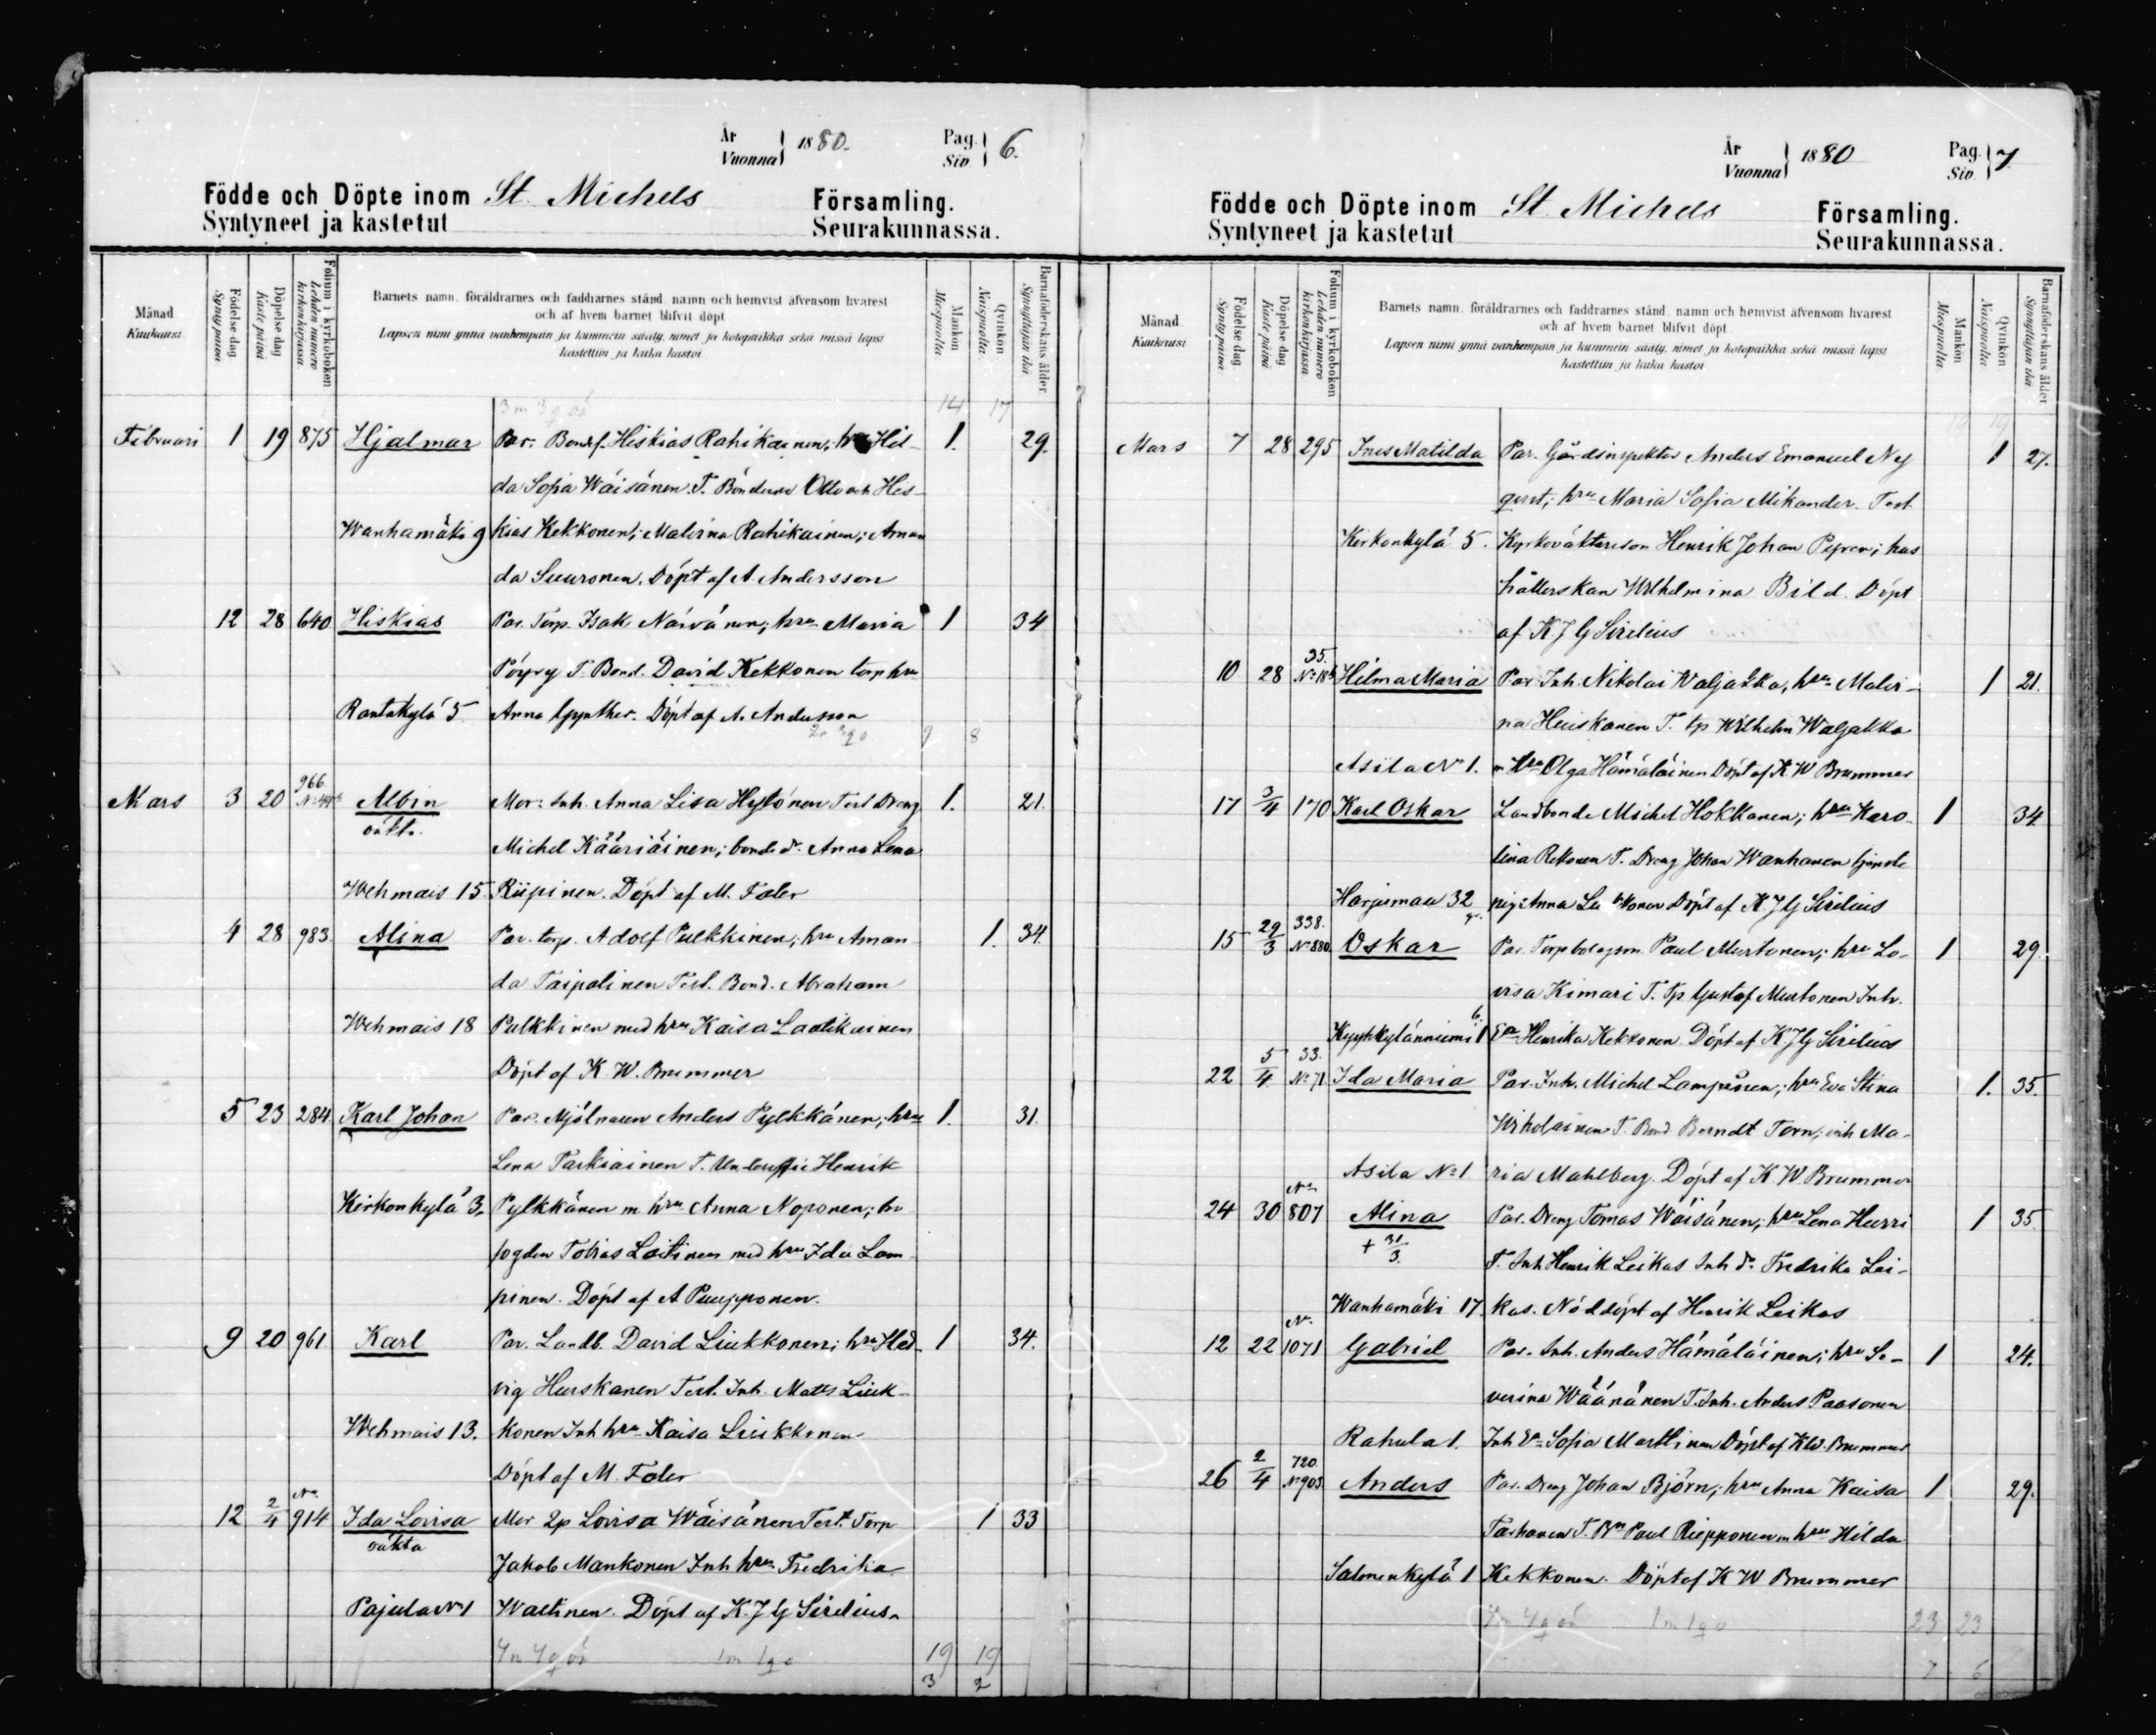 År
Vuonna 1880. Pag. Siv. 6.
Födde och Döpte inom St. Michels Församling.
Syntyneet ja kastetut Seurakunnassa.
Månad Kuukausi
Födelse dag Synty päivä
Döpelse dag Kaste päivä
Folium i kyrkoboken Lehden numero kirkonkirjassa
Barnets namn, föräldrarnes och faddrarnes stånd, namn och hemvist äfvensom hvarest
och af hvem barnet blifvit döpt
Lapsen nimi ynnä vanhempain ja kummein sääty, nimet ja kotopaikka sekä missä lapsi
kastettiin ja kuka kastoi
Mankön Miespuolta
Qvinkön Naispuolta
Barnaföderskans ålder Synnyttäjän ikä
14 17
Februari 1 19 875 Hjalmar Par: Bond. Hiskias Rahikainen; hru Hil- 1. 29.
da Sofia Wäisänen. T. Bönderne Otto och His-
Wanhamäki 9 kias Kekkonen; Malvina Rahikainen; Aman
da Suuronen. Döpt af A. Andersson
12 28 640 Hiskias Par. Torp. Isak Näivänen; hru Maria 1 34
Pöyry T. Bond. David Kekkonen torp hru
Rantakylä 5 Anna Gynther. Döpt af A. Andersson
9 8
Mars 3 20 966 No 44 Albin Mor: Inh. Anna Lisa Hytönen Test Dreng 1. 21.
oäkta.
Michel Kääriäinen; bonde d. Anna Lena
Wehmais 15. Riipinen. Döpt af M. Foler
4 28 983 Alina Par. torp. Adolf Pulkkinen; hru Aman 1. 34.
da Taipalinen Test. Bond. Abraham
Wehmais 18 Pulkkinen med hru Kaisa Laatikainen
Döpt af K. W. Brummer
5 23 284 Karl Johan Par. Mjölnaren Anders Pylkkänen; hru 1. 31.
Lena Tarkiainen T. Underoffic Henrik
Kirkonkylä 3. Pylkkänen m hru Anna Noponen; bo
fogden Tobias Laitinen med hru Ida Lam
pinen. Döpt af A Puupponen.
9 20 961. Karl Par. Landb. David Liukkonen; hru Hed- 1 34.
vig Hurskanen Test. Inh. Matts Liuk-
Wehmais 13. konen Inh hru Kaisa Liukkonen
Döpt af M. Foler
12 2/4 No 914 Ida Lovisa Mor Lovisa Wäisänen Test. Torp 1 33
oäkta
Jakob Mankonen Inh hru Fredrika
Pajula No 1 Waltinen. Döpt af K. J G Sirelius.
19 19
3 2
År
Vuonna 1880 Pag. Siv. 7
Födde och Döpte inom St. Michels Församling.
Syntyneet ja kastetut Seurakunnassa.
Månad Kuukausi
Födelse dag Synty päivä
Döpelse dag Kaste päivä
Folium i kyrkoboken Lehden numero kirkonkirjassa
Barnets namn, föräldrarnes och faddrarnes stånd, namn och hemvist äfvensom hvarest
och af hvem barnet blifvit döpt
Lapsen nimi ynnä vanhempain ja kummein sääty, nimet ja kotopaikka sekä missä lapsi
kastettiin ja kuka kastoi
Mankön Miespuolta
Qvinkön Naispuolta
Barnaföderskans ålder Synnyttäjän ikä
Mars 7 28 295 Ines Matilda Par. Gårdsinspektor Anders Emanuel Ny 1 27.
qvist; hru Maria Sofia Mikander. Test.
Kirkonkylä 5. Kyrkoväktareson Henrik Johan; hus
hållerskan Wilhelmina Bild. Döpt
af K J G Sirelius
10 28 35. Hilma Maria Par Inh. Nikolai Waljakka, hru Malvi- 1 21.
na Huiskonen T. tp Wilhelm Waljakka
Asila No 1. m hru Olga Hämäläinen Döpt af K W Brummer
17 3/4 170 Karl Oskar Landbonde Michel Hokkanen; hru Karo- 1 34
lina Rekonen T. Dreng Johan Wanhanen
Harjumaa 32 pig. Anna Döpt af K J G Sirelius
15 29/3 338. No 880 Oskar Par. Torpbolagsm. Paul Murtonen; hru Lo- 1 29.
visa Kimari T. tp Gustaf Murtonen Inh.
Henrika Kekkonen. Döpt af K J G Sirelius
22 5/4 33. No 71 Ida Maria Par. Inh. Michel Lampinen; hru Eva Stina 1. 35.
Wiholainen T. Bond. Berndt Torn; inh Ma-
Asila No 1 ria Mahlberg. Döpt af K W Brummer
24 30 No 807 Alina Par. Dreng Tomas Wäisänen; hru Lena Hurri 1 35.
+ 31/3. T. Inh Henrik Leikas Inh d. Fredrika Lei-
Wanhamäki 17. kas. Nöddöpt af Henrik Leikas
12 22 No 1071 Gabriel Par. Inh. Anders Hämäläinen; hru Se- 1 24.
verina Väänänen T. Inh. Anders Paasonen
Rahula 1. Inh Sofia Marttinen Döpt af K W. Brummer
26 2/4 720. No 903 Anders Par. Dreng Johan Björn; hru Anna Kaisa 1 29.
Tarhanen T. Paul Riepponen m hru Hilda
Salmenkylä 1 Kekkonen. Döpt af K W Brummer
23 23
7 6